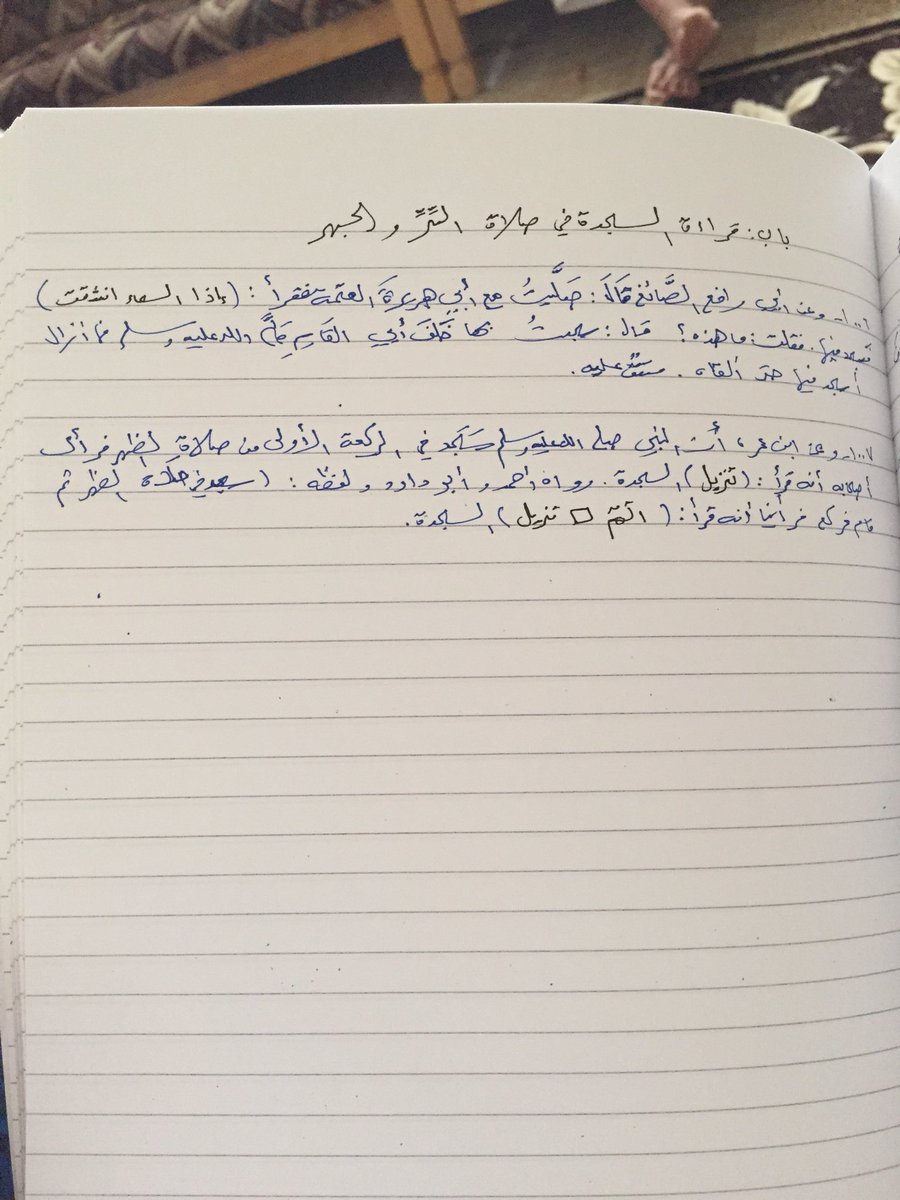 باب: قراءة السجدة في صلاة السِّرِّ والجهر
١٠٠٦- وعن أبي رافع الصَّائغ قَالَ: صَلَّيتُ مع أبِي هريرةَ العتمة فقرأ: (إذا السماء انشقت)
فسجد فيها. فقلت: ما هذه؟ قال: سجدتُ بها خَلفَ أبي القاسِمِ صَلَّى الله عليه وسلم فما أزال
أسجد فيها حتى ألقاه. متفقٌ عليه.
١٠٠٧- وعن ابن عمر، أَنَّ النبي صلى الله عليه وسلم سَجَدَ في الركعة الأولى من صلاةِ الظهر فرأى
أصحابه أنه قرأ: (تنزيل) السجدة. رواه أحمد وأبو داود ولفظه: (سجد في صلاة الظهر ثم
قام فركع فرأينا أنه قرأ: (الم □ تنزيل) السجدة.